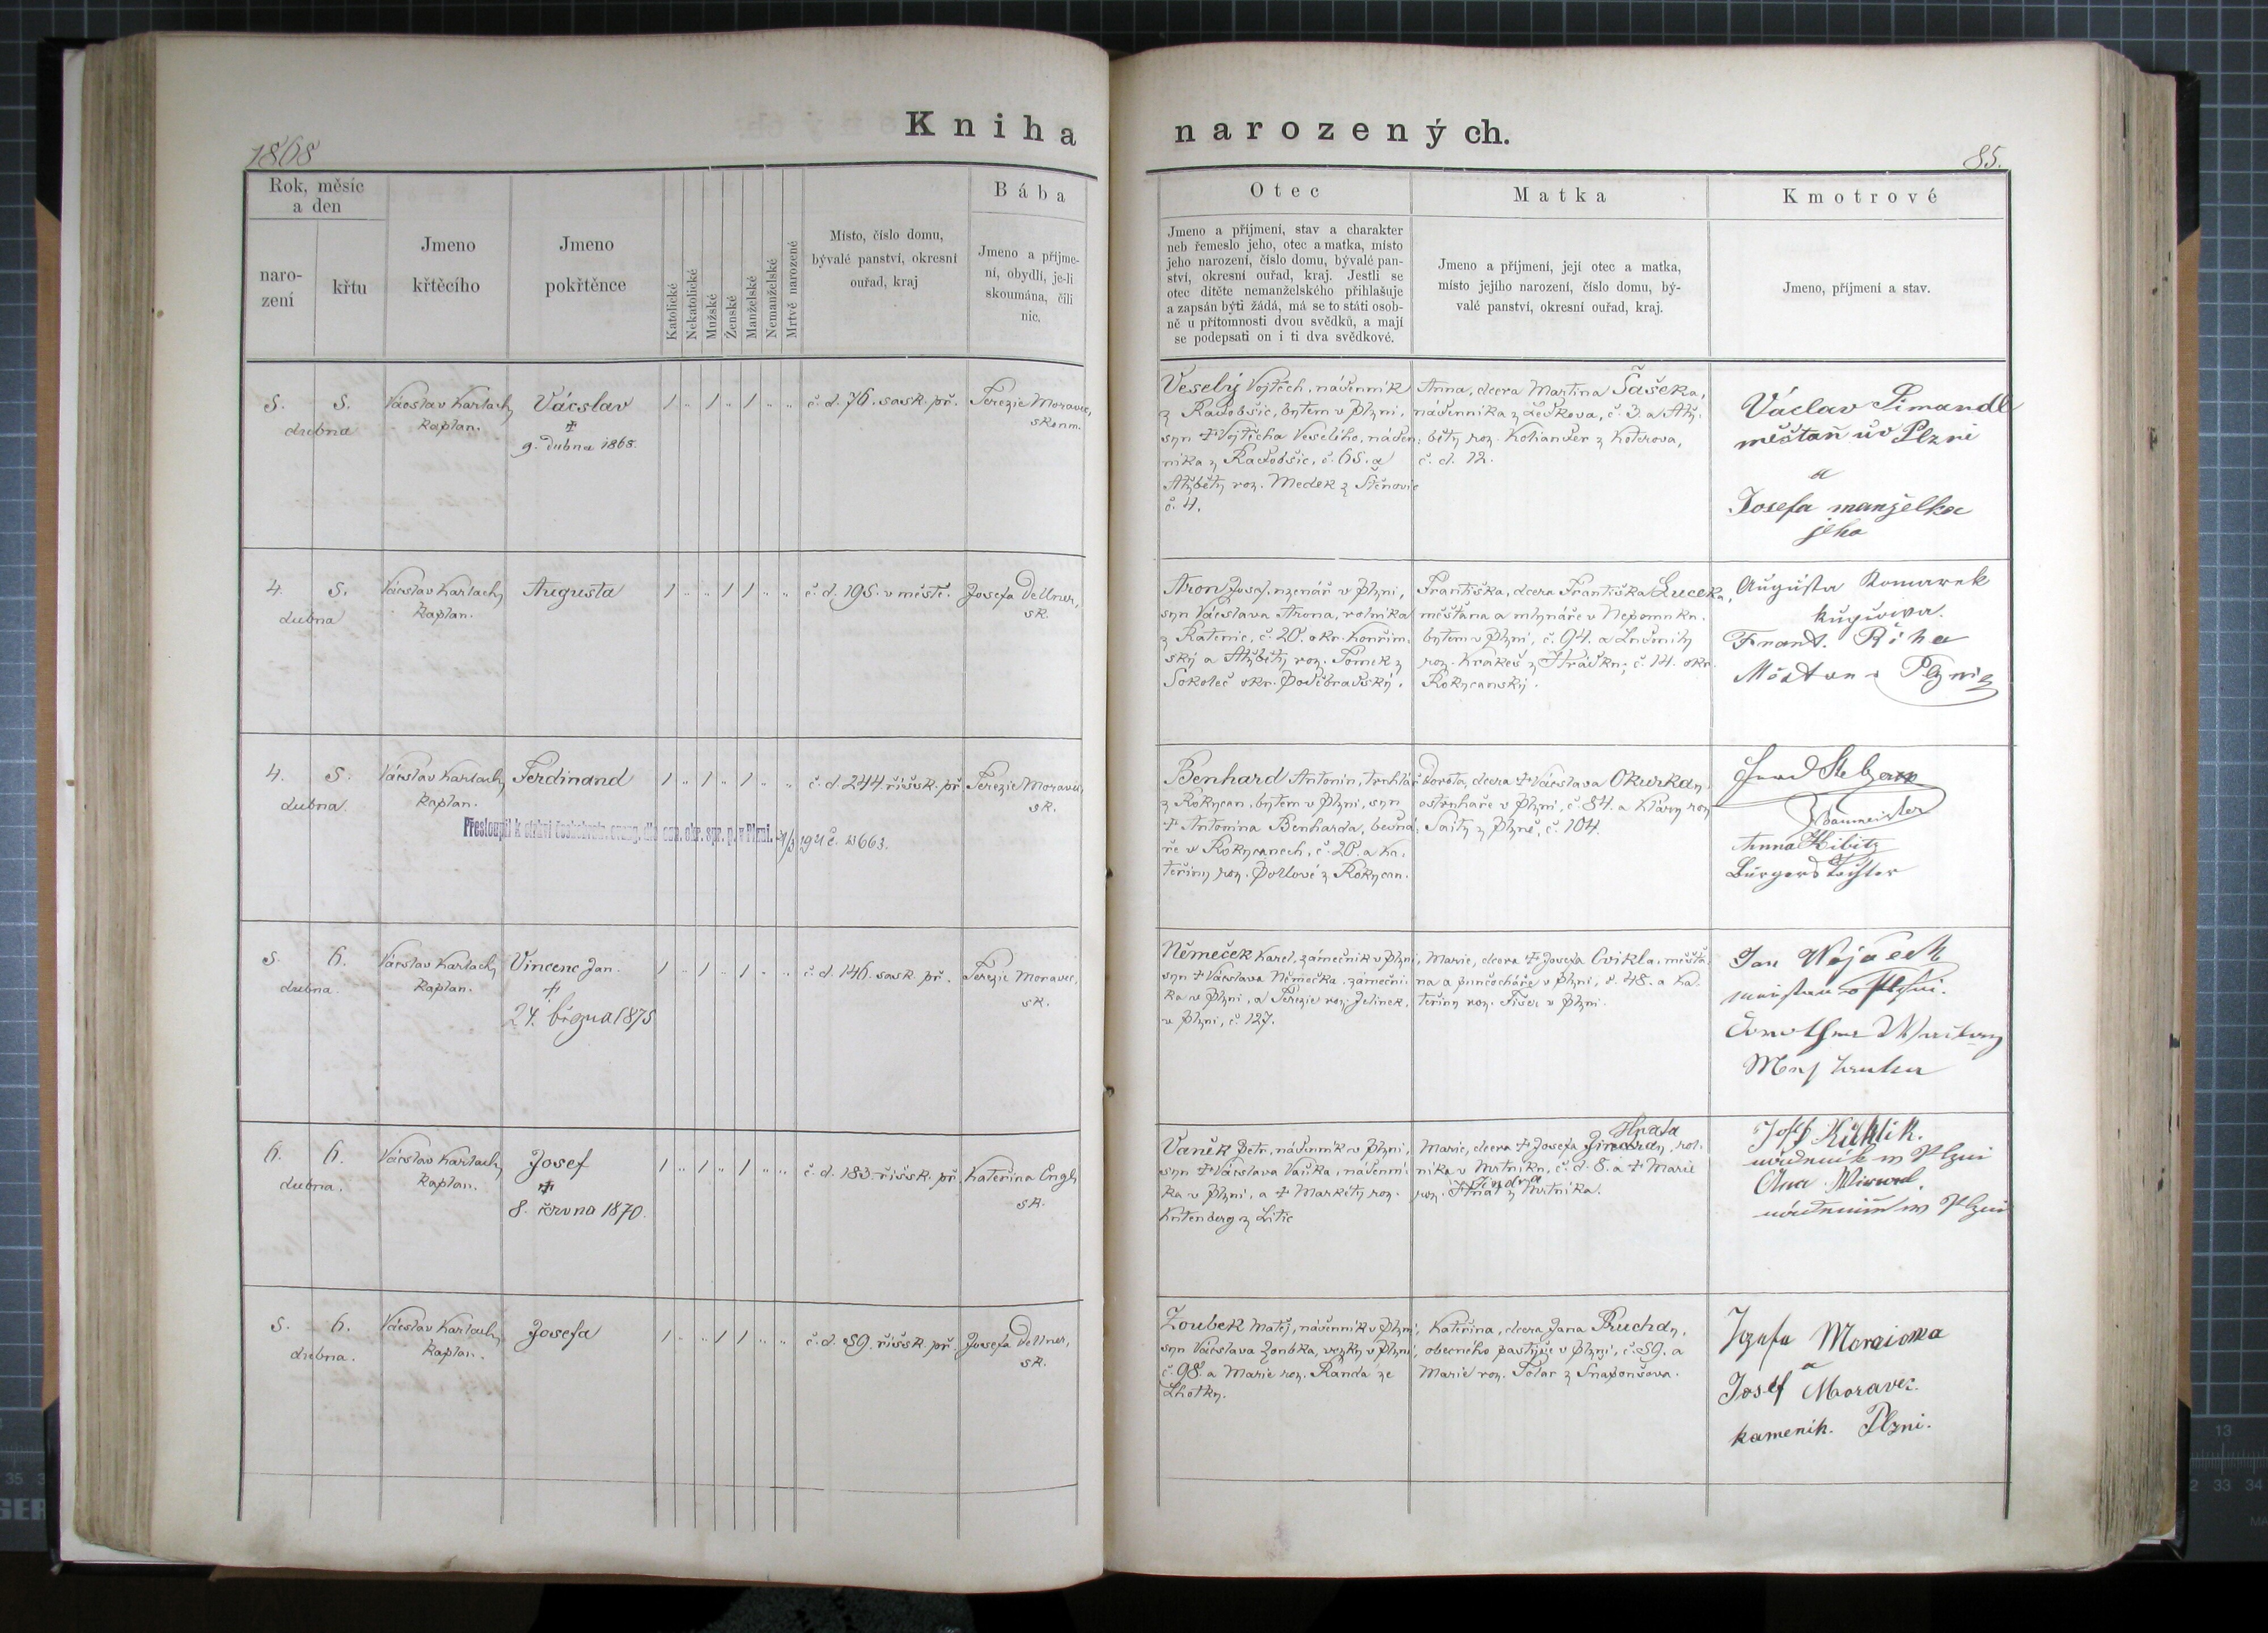 Kniha narozených.
1868
85.
Rok, měsíc
a den
naro-
zení
křtu
Jmeno
křtěcího
Jmeno
pokřtěnce
Katolické
Nekatolické
Mužské
Ženské
Manželské
Nemanželské
Mrtvě narozené
Místo, číslo domu,
bývalé panství, okresní
ouřad, kraj
Bába
Jmeno a příjme-
ní, obydlí, je-li
skoumána, čili
nic.
Otec
Jmeno a příjmení, stav a charakter
neb řemeslo jeho, otec a matka, místo
jeho narození, číslo domu, bývalé pan-
ství, okresní ouřad, kraj. Jestli se
otec dítěte nemanželského přihlašuje
a zapsán býti žádá, má se to státi osob-
ně u přítomnosti dvou svědků, a mají
se podepsati on i ti dva svědkové.
Matka
Jmeno a příjmení, její otec a matka,
místo jejího narození, číslo domu, bý-
valé panství, okresní ouřad, kraj.
Kmotrové
Jmeno, příjmení a stav.
5. 5.
dubna
Václav Karlach,
kaplan.
Vácslav
+
9. dubna 1868.
1 " 1 " 1 " "
č. d. 76. sask. př.
Terezie Moravec,
skoum.
Veselý Vojtěch, nádenník
z Radobšic, bytem v Plzni,
syn + Vojtěcha Veselího, náden-
níka z Radobšic, č. 65. a
Alžběty roz. Medek z Štěnovic
č. 4.
Anna, dcera Martina Šašeka,
nádenníka z Ledkova, č. 3. a Alž-
běty roz. Koliander z Koterova,
č. d. 12.
Václav Simandl
měštan úv Plzni
a
Josefa manželka
jeho
4. 5.
dubna
Vácslav Karlach,
kaplan.
Augusta
1 " " 1 1 " "
č. d. 195. v městě.
Josefa Vellner,
sk.
Aron Josef, uzenář v Plzni,
syn Vácslava Arona, rolníka
z Ratenic, č. 20. okr. Kouřim-
ský a Alžběty roz. Tomek z
Sokoleč okr. Poděbradský.
Františka, dcera Františka Luceka,
měšťana a mlynáře v Nepomuku,
bytem v Plzni, č. 94. a Ludmily
roz. Krákeš z Hrádku, č. 14. okr.
Rokycanský.
Augusta Komarek
Frant. Řiha
Měštan v Plzni
4. 5.
dubna.
Vácslav Karlach,
kaplan.
Ferdinand
1 " 1 " 1 " "
č. d. 244. říšsk. př.
Terezie Moravec,
sk.
Přestoupil k církvi českobratr. evang. dle ozn. okr. spr. p. v Plzni
Benhard Antonín, truhlář
z Rokycan, bytem v Plzni, syn
+ Antonína Benharda, bedná-
ře v Rokycanech, č. 20. a Ka-
teřiny roz. Pollové z Rokycan.
Dorota, dcera + Vácslava Okurka,
ostruháře v Plzni, č. 84. a Kláry roz.
Saitz z Plzně, č. 104.
Baumeister
Anna Hibitz
Bürgers Tochter
5. 6.
dubna.
Vácslav Karlach,
kaplan.
Vincenc Jan.
+
24. března 1875
1 " 1 " 1 " "
č. d. 146. sask. př.
Terezie Moravec,
sk.
Němeček Karel, zámečník v Plzni,
syn + Vácslava Němečka, zámeční-
ka v Plzni, a Terezie roz. Jelinek,
v Plzni, č. 127.
Marie, dcera + Josefa Cvikla, měšťa-
na a punčocháře v Plzni, č. 48. a Ka-
teřiny roz. Fišer v Plzni.
Jan Wojáček
6. 6.
dubna.
Vácslav Karlach,
kaplan.
Josef
+
8. června 1870.
1 " 1 " 1 " "
č. d. 183. říšsk. př.
Kateřina Engl,
sk.
Vaněk Petr, nádenník v Plzni,
syn + Vácslava Vaňka, nádenní-
ka v Plzni, a + Markéty roz.
Kutenberg z Litic
Marie, dcera + Josefa Jindra, rol-
níka v Mrtníku, č. d. 8. a + Marie
roz. Hnát z Mrtníka.
Ana
5. 6.
dubna.
Vácslav Karlach,
kaplan.
Josefa
1 " " 1 1 " "
č. d. 89. říšsk. př.
Josefa Vellner,
sk.
Zoubek Matěj, nádenník v Plzni,
syn Vácslava Zoubka, v Plzni,
č. 98. a Marie roz. Randa ze
Lhotky.
Kateřina, dcera Jana Ruchdy,
obecného pastýře v Plzni, č. 89. a
Marie roz. Tolar z Snapoušova.
Jozefa
a
Josef Moravec
kameník. Plzni.